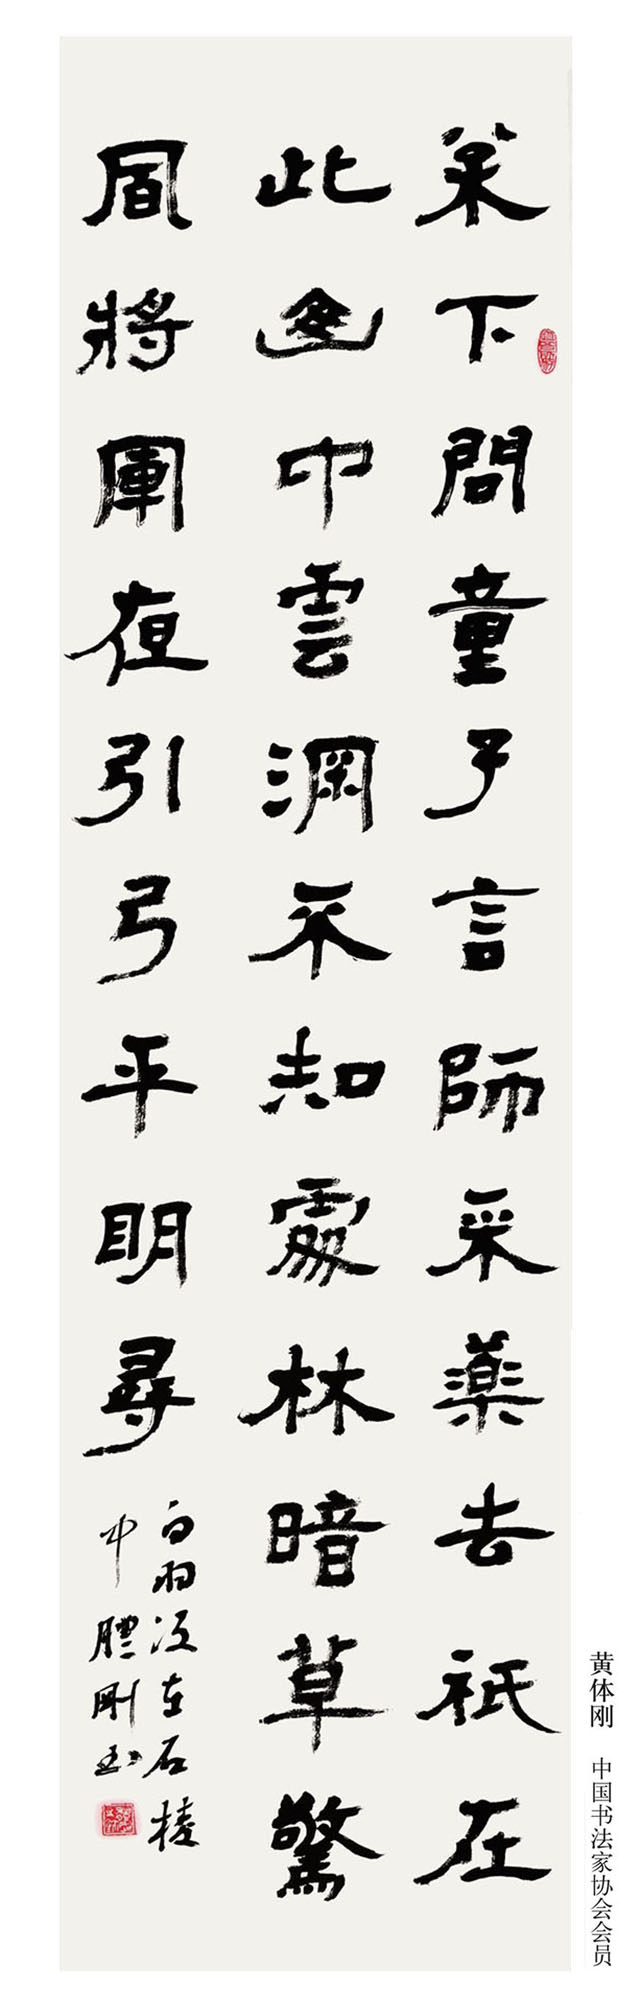 松下問童子言師采藥去祇在
此山中雲深不知處林暗草驚
風將軍夜引弓平明尋
白羽沒在石棱
中 體剛書
黄体刚 中国书法家协会会员